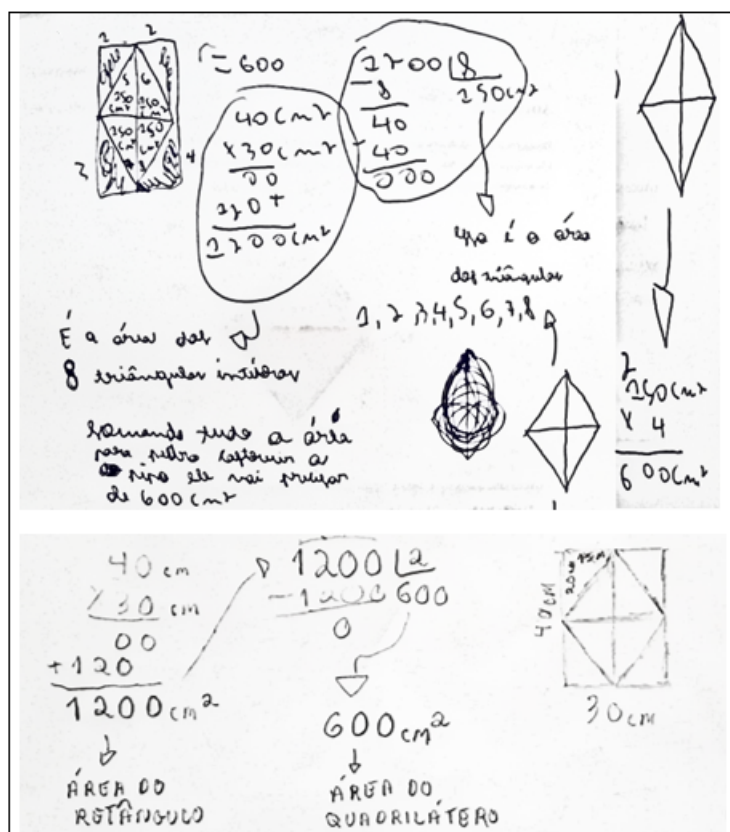 2 2
= 600
6
150 cm² 150 cm²
150 cm² 150 cm²
40 cm²
x 30 cm²
00
120 +
1200 cm²
1200 8
- 8 150 cm²
40
- 40
000
é a área
dos triângulos
1, 2, 3, 4, 5, 6, 7, 8
É a área das
8 triângulos
somando tudo a área
para pedro a
pipa ele vai precisar
de 600 cm²
2
150 cm²
x 4
600 cm²
40 cm
x 30 cm
00
+ 120
1200 cm²
ÁREA DO
RETÂNGULO
1200 2
- 1200 600
0
600 cm²
ÁREA DO
QUADRILÁTERO
40 cm
30 cm